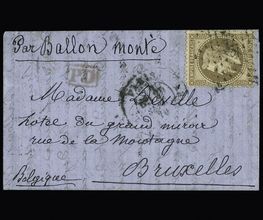 Par Ballon monté
PD
PARIS
Madame Léville
hotel du grand miroir
rue de la Montagne
Bruxelles
Belgique